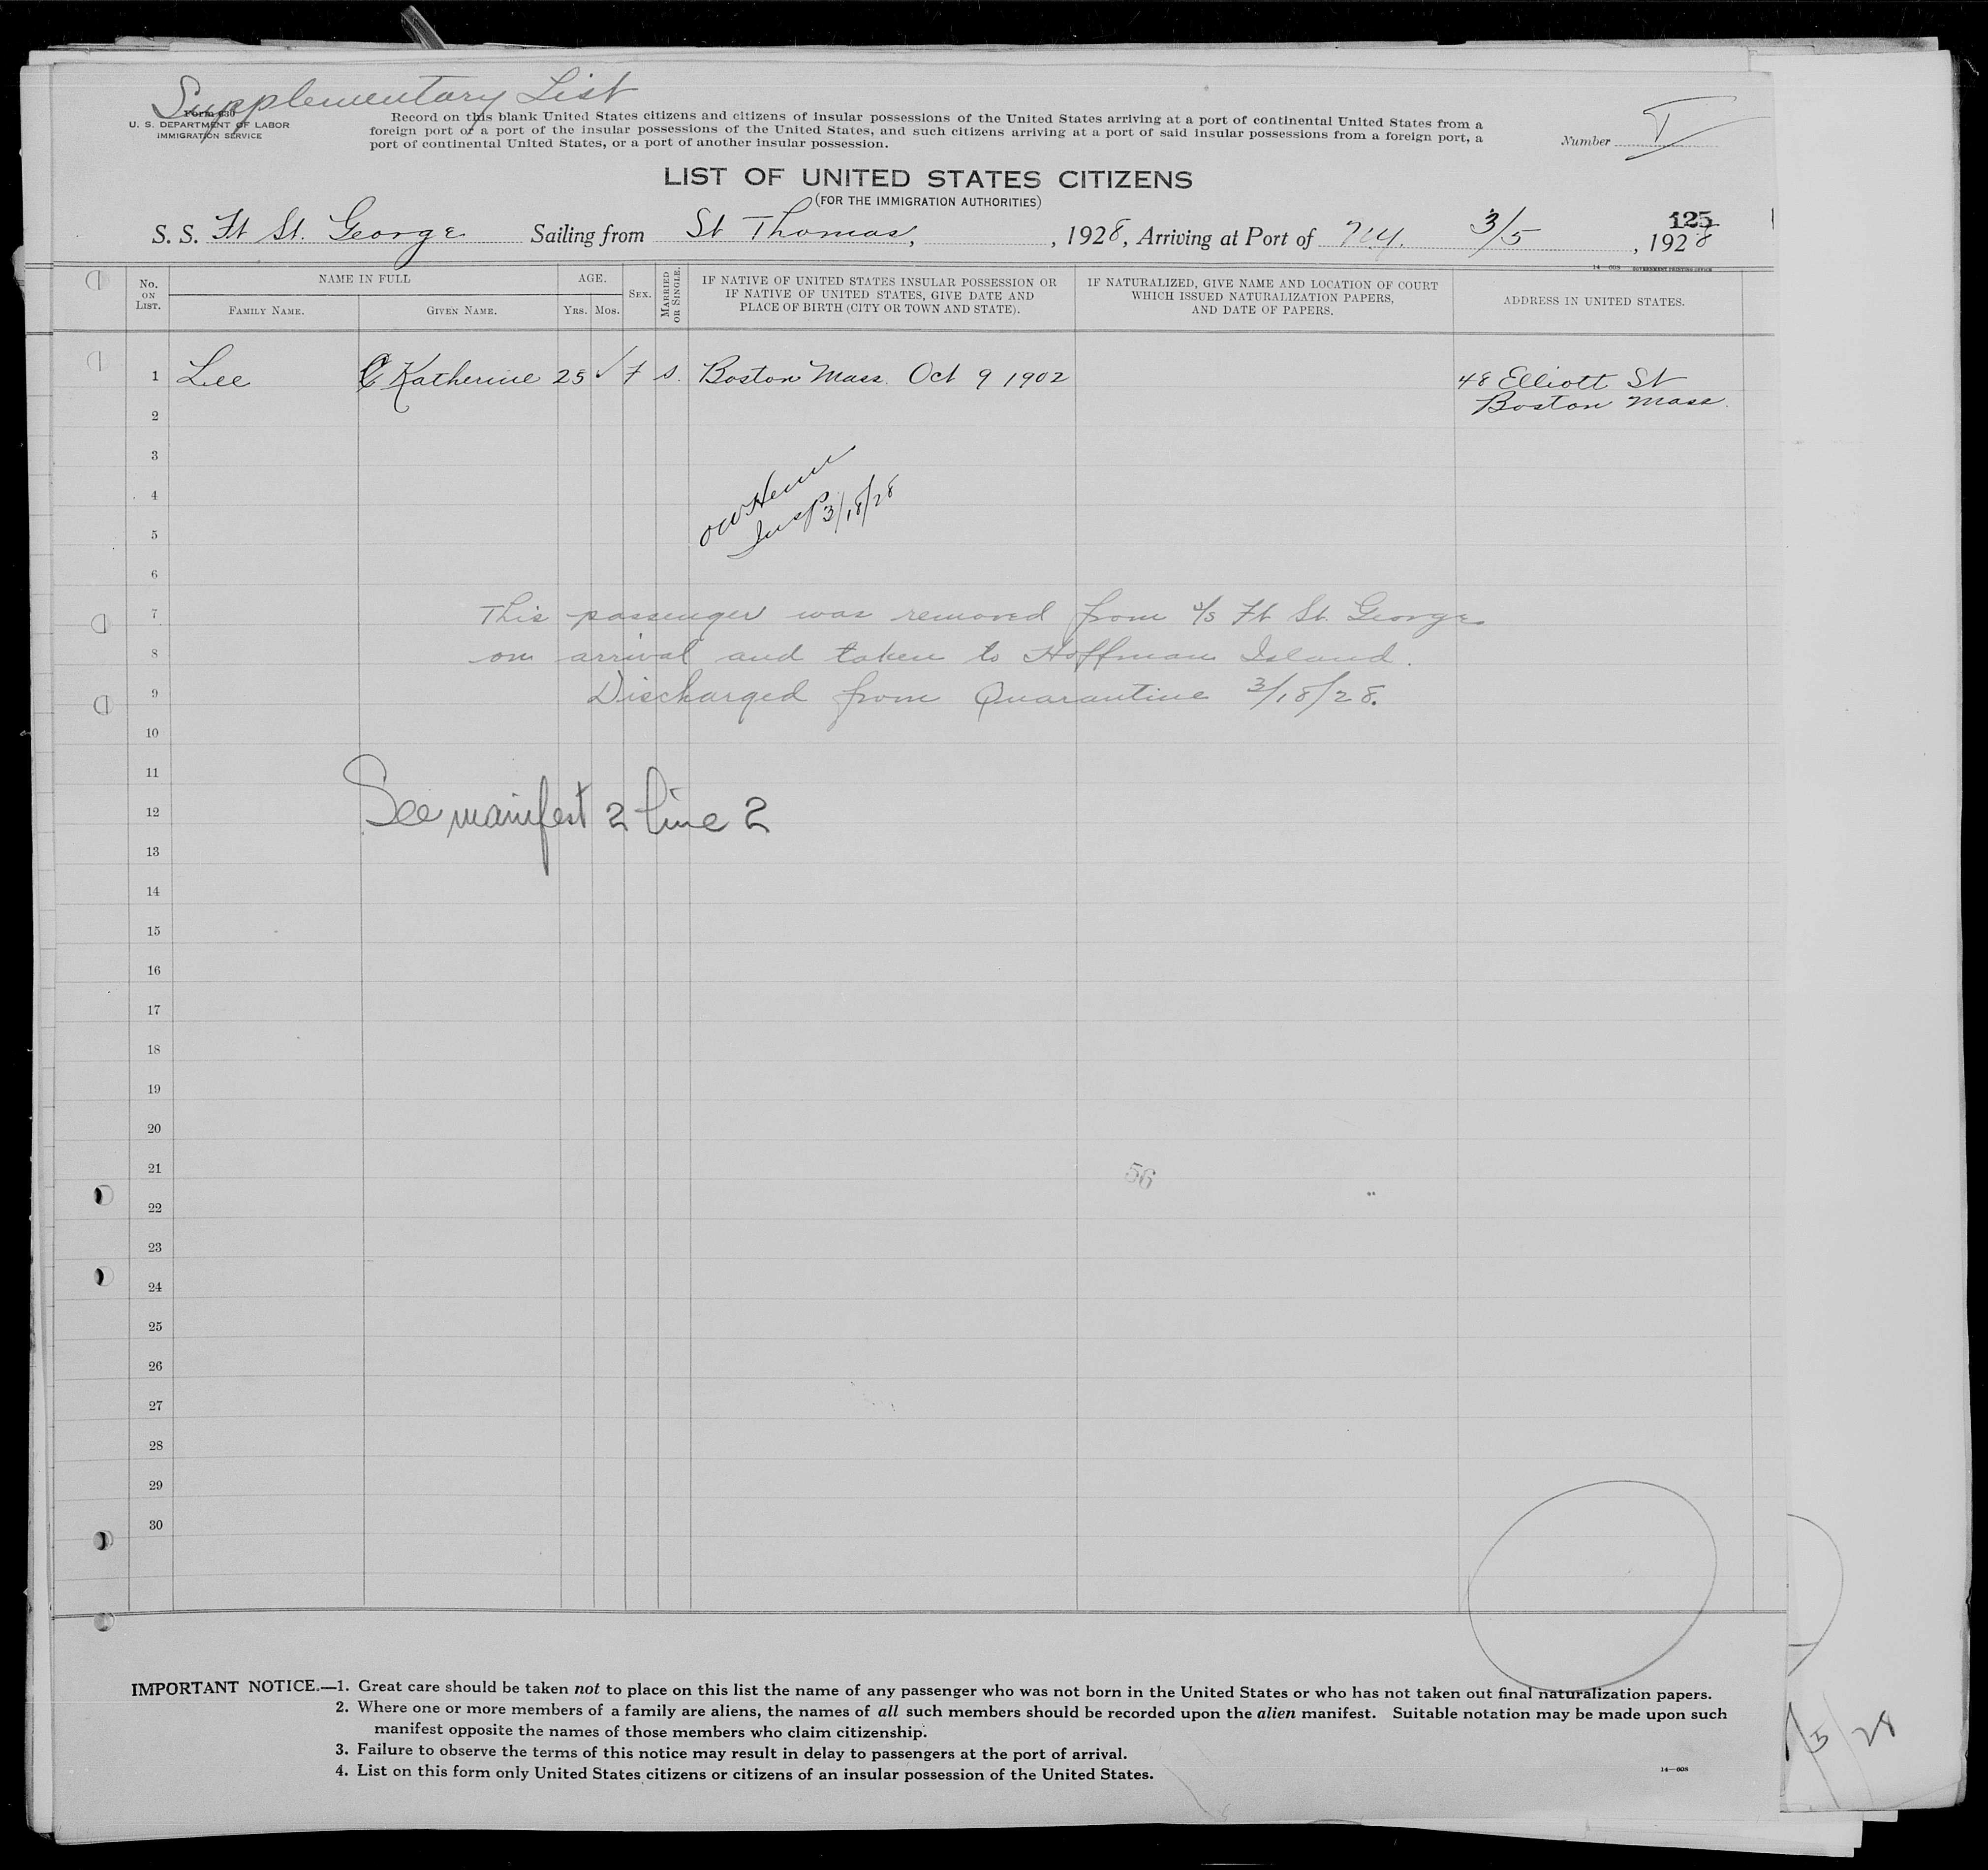 Supplementary List
Form 630
U. S. DEPARTMENT OF LABOR
IMMIGRATION SERVICE
Record on this blank United States citizens and citizens of insular possessions of the United States arriving at a port of continental United States from a
foreign port or a port of the insular possessions of the United States, and such citizens arriving at a port of said insular possessions from a foreign port, a
port of continental United States, or a port of another insular possession.
Number
LIST OF UNITED STATES CITIZENS
(FOR THE IMMIGRATION AUTHORITIES)
125
S. S. Ft St. George Sailing from St Thomas, , 1928, Arriving at Port of N.Y. 3/5 , 1928
14—608 GOVERNMENT PRINTING OFFICE
No. ON LIST.
NAME IN FULL
FAMILY NAME.
GIVEN NAME.
AGE.
YRS. MOS.
SEX.
MARRIED OR SINGLE.
IF NATIVE OF UNITED STATES INSULAR POSSESSION OR
IF NATIVE OF UNITED STATES, GIVE DATE AND
PLACE OF BIRTH (CITY OR TOWN AND STATE).
IF NATURALIZED, GIVE NAME AND LOCATION OF COURT
WHICH ISSUED NATURALIZATION PAPERS,
AND DATE OF PAPERS.
ADDRESS IN UNITED STATES.
1 Lee Katherine 25 ✓ F S. Boston Mass. Oct 9 1902 48 Elliott St
Boston Mass.
2
3
4
Insp 3/18/28
5
6
7 This passenger was removed from s/s Ft St. George
8 on arrival and taken to Hoffman Island.
9 Discharged from Quarantine 3/18/28.
10
11
12 See manifest 2 line 2
13
14
15
16
17
18
19
20
21 56
22
23
24
25
26
27
28
29
30
IMPORTANT NOTICE.—1. Great care should be taken not to place on this list the name of any passenger who was not born in the United States or who has not taken out final naturalization papers.
2. Where one or more members of a family are aliens, the names of all such members should be recorded upon the alien manifest. Suitable notation may be made upon such
manifest opposite the names of those members who claim citizenship.
3. Failure to observe the terms of this notice may result in delay to passengers at the port of arrival.
4. List on this form only United States citizens or citizens of an insular possession of the United States.
14—608
/5/28